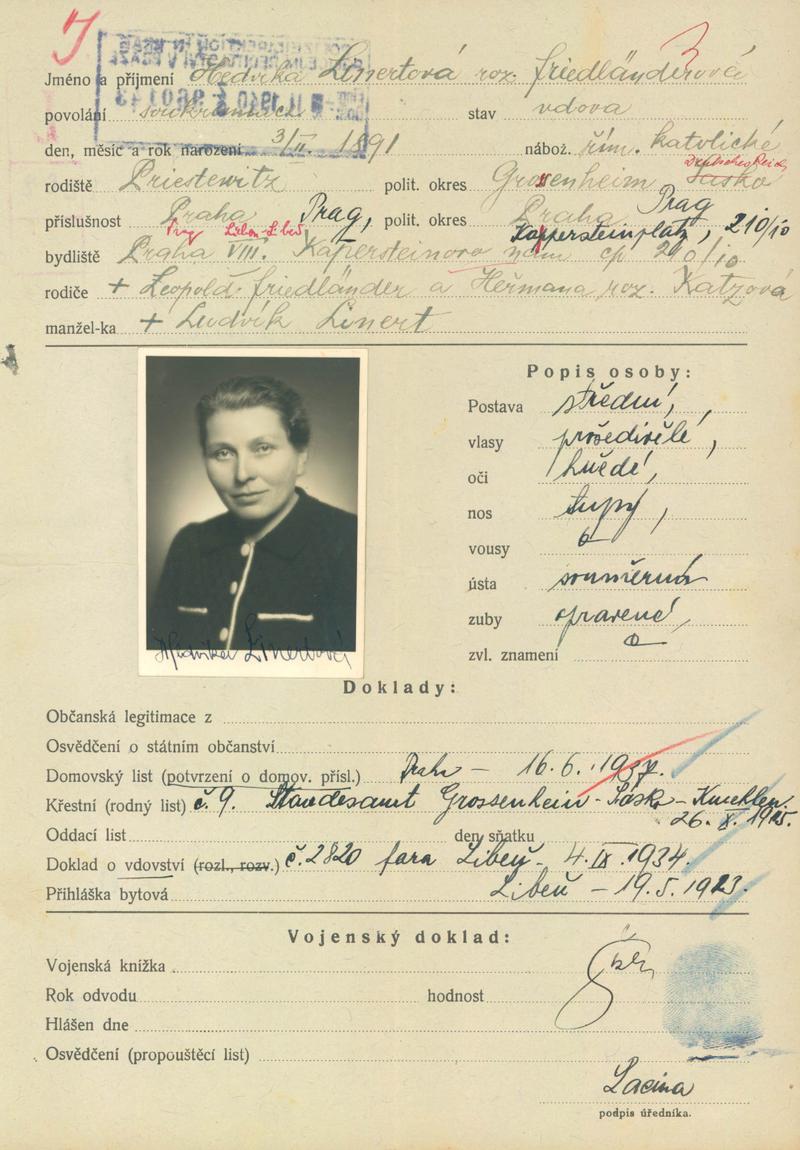 J
3
Jméno a příjmení Hedvika Linertová roz. Friedländerová
povolání soukromnice stav vdova
den, měsíc a rok narození 3/II. 1891 nábož. řím. katolické
Deutsches Reich
rodiště Priestewitz polit. okres Grossenheim Sasko
příslušnost Praha Prag, polit. okres Praha Prag
Prag Lieben-Libeň Kappersteinplatz, 210/10
bydliště Praha VIII. Kapersteinovo nám čp. 210/10
rodiče + Leopold Friedländer a Heřmana roz. Katzová
manžel-ka + Ludvík Linert
Popis osoby:
Postava střední,
vlasy prošedivělé,
oči hnědé,
nos tupý,
vousy
ústa souměrná
zuby opravené,
zvl. znamení
Hedvika Linertová
Doklady:
Občanská legitimace z
Osvědčení o státním občanství
Domovský list (potvrzení o domov. přísl.) Praha — 16.6.1937.
Křestní (rodný list) č. 9. Standesamt Grossenhein - Sask -
26. X. 1915.
Oddací list den sňatku
Doklad o vdovství (rozl., rozv.) č. 2820 fara Libeň - 4.IX.1934.
Přihláška bytová Libeň — 19.5.1923.
Vojenský doklad:
Vojenská knížka
Rok odvodu hodnost
Hlášen dne
Osvědčení (propouštěcí list)
Lacina
podpis úředníka.